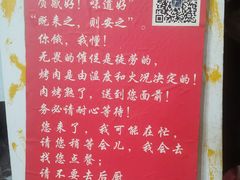 质嫩好！味道好！
“既来之，则安之”。
你饿，我懂！
无畏的催促是徒劳的，
烤肉是由温度和火况决定的！
肉烤熟了，送到您面前！
务必请耐心等待！
您来了，我可能在忙，
请您稍等会儿，我会去
找您点餐；
请不要去后厨